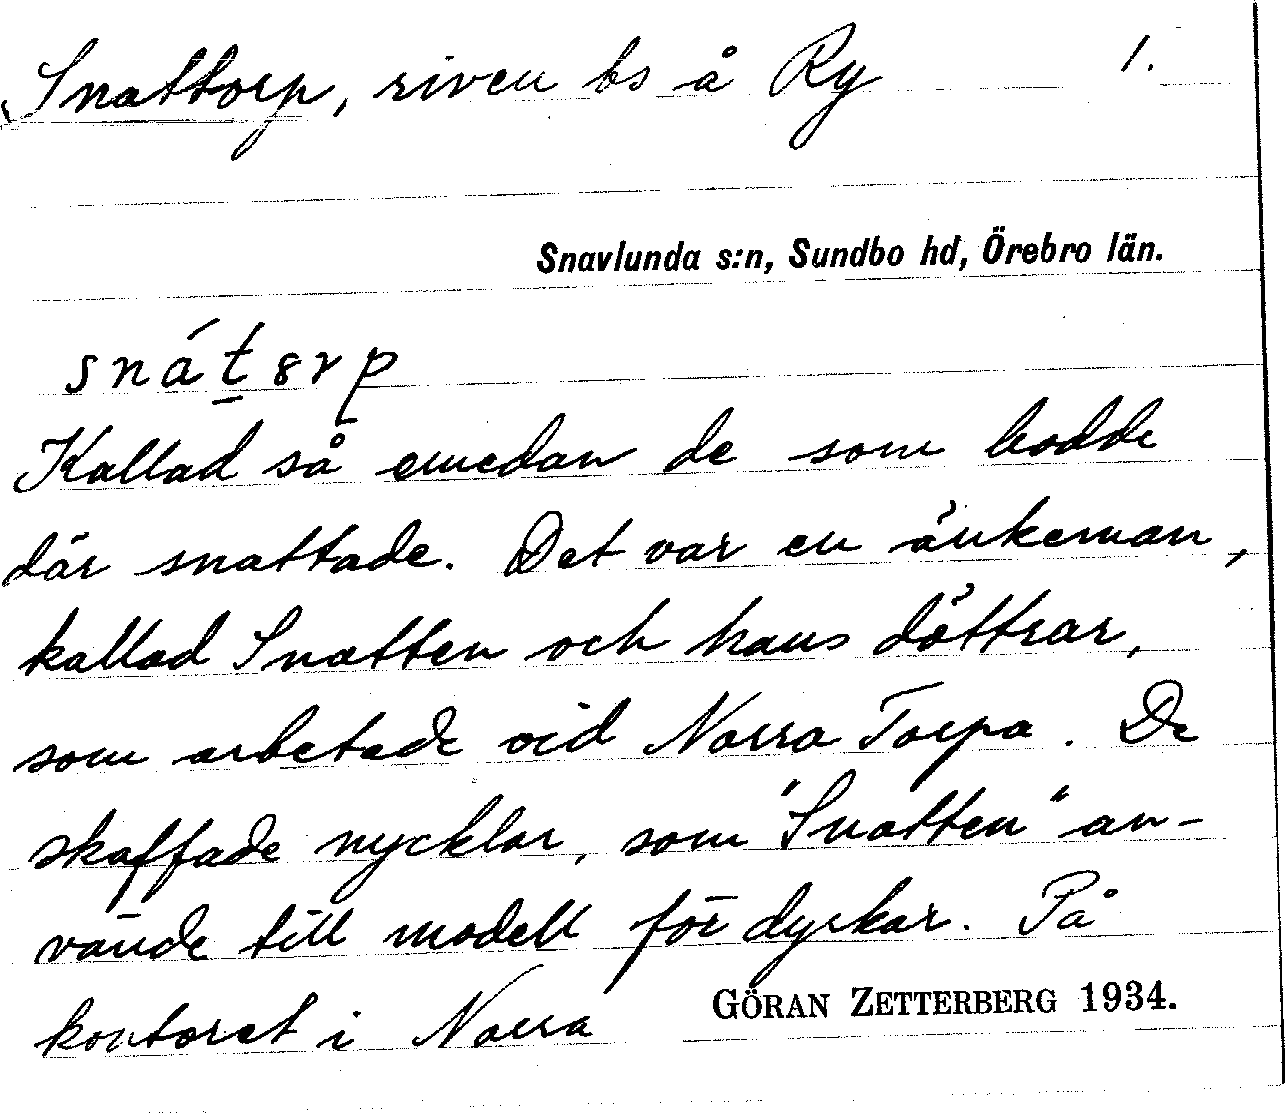 Snattorp, riven bs å Ry 1.
Snavlunda s:n, Sundbo hd, Örebro län.
snát̠ꞷrp
Kallad så emedan de som bodde
där snattade. Det var en änkeman,
kallad Snatten och hans döttrar,
som arbetade vid Norra Torpa. De
skaffade nycklar, som "Snatten" an-
vände till modell för dyrkar. På
kontoret i Norra
GÖRAN ZETTERBERG 1934.